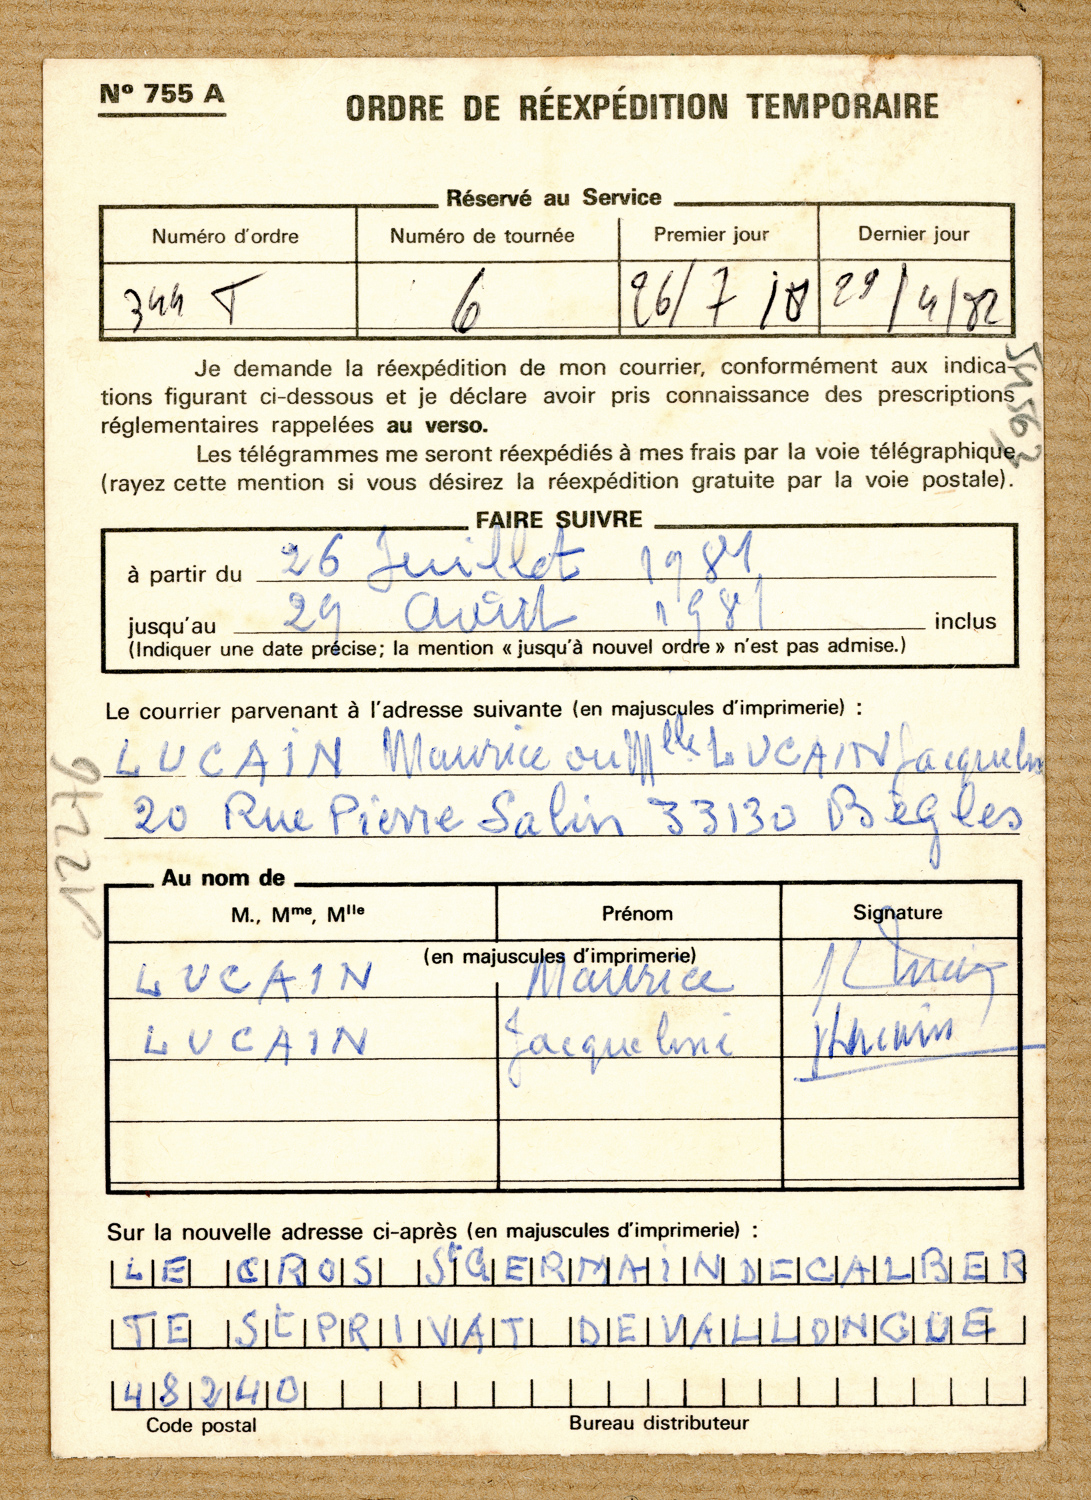 Nº 755 A
ORDRE DE RÉEXPÉDITION TEMPORAIRE
Réservé au Service
Numéro d'ordre Numéro de tournée Premier jour Dernier jour
344 T 6 26/7 29/4/82
Je demande la réexpédition de mon courrier, conformément aux indica-
tions figurant ci-dessous et je déclare avoir pris connaissance des prescriptions
réglementaires rappelées au verso.
Les télégrammes me seront réexpédiés à mes frais par la voie télégraphique
(rayez cette mention si vous désirez la réexpédition gratuite par la voie postale).
FAIRE SUIVRE
à partir du 26 Juillet 1981
jusqu'au 29 Août 1981 inclus
(Indiquer une date précise; la mention « jusqu'à nouvel ordre » n'est pas admise.)
Le courrier parvenant à l'adresse suivante (en majuscules d'imprimerie) :
LUCAIN Maurice ou Mlle LUCAIN Jacqueline
20 Rue Pierre Salin 33130 Bègles
Au nom de
M., Mme, Mlle Prénom Signature
(en majuscules d'imprimerie)
LUCAIN Maurice
LUCAIN Jacqueline
Sur la nouvelle adresse ci-après (en majuscules d'imprimerie) :
LE CROS St GERMAIN DE CALBER
TE St PRIVAT DE VALLONGUE
48240
Code postal Bureau distributeur
91276